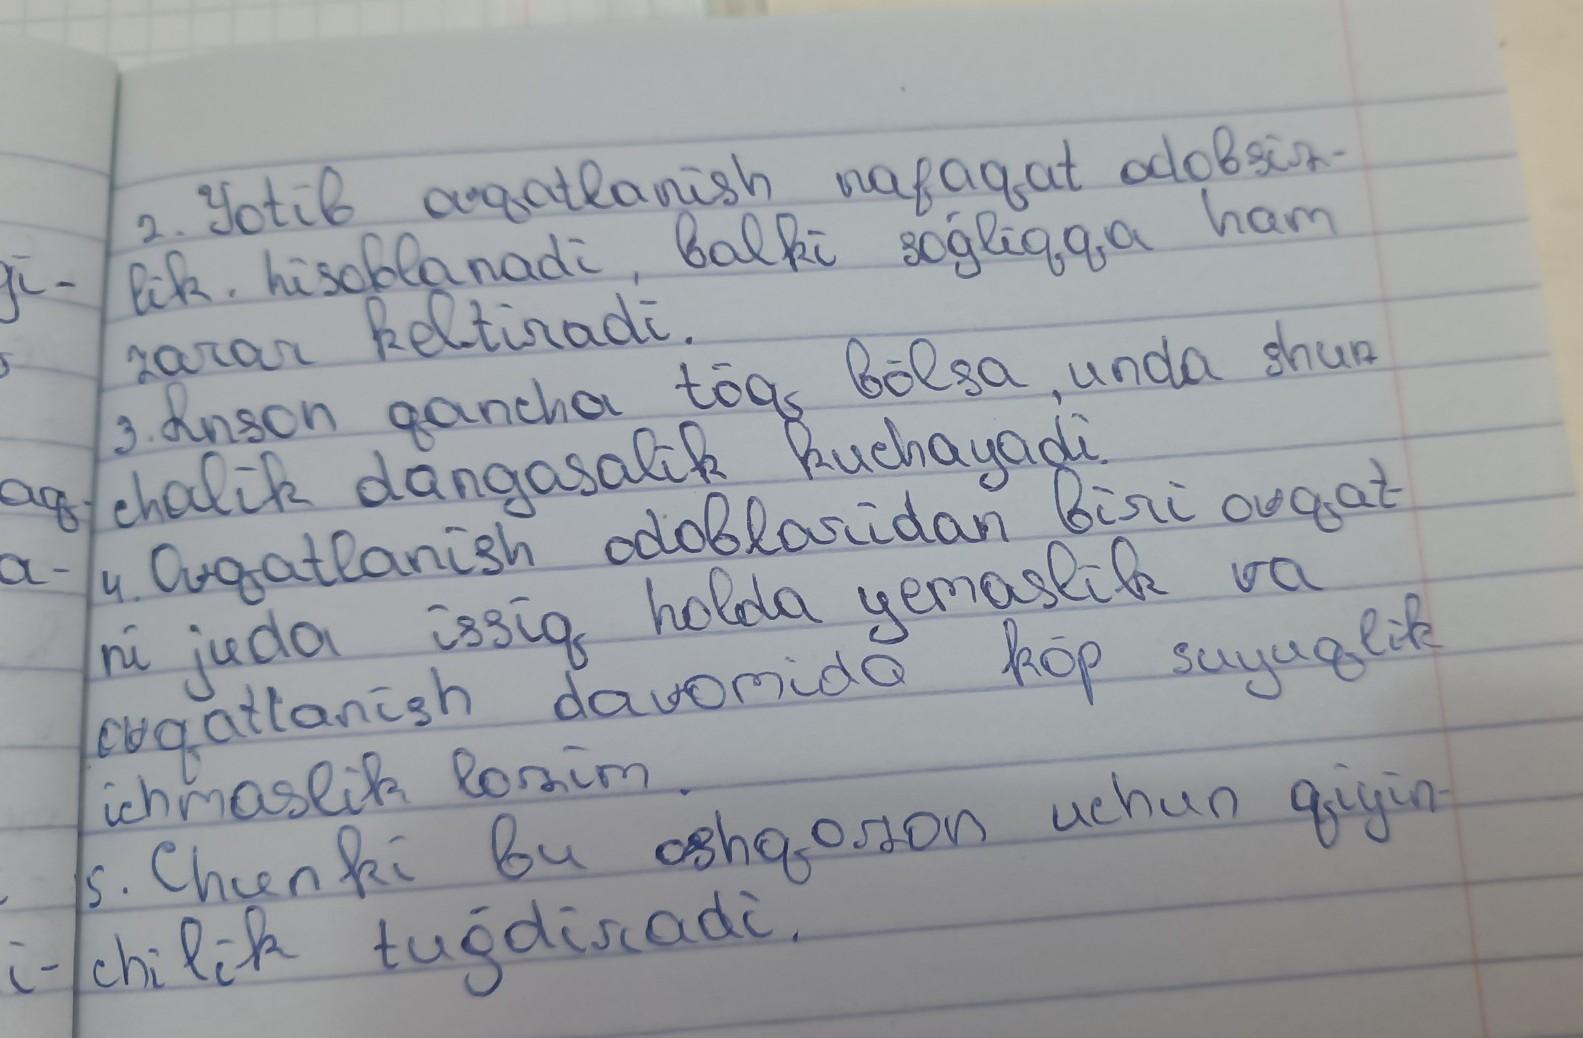 2. Yotib ovqatlanish nafaqat odobsiz-
gi- lik. hisoblanadi, balki sōḡliqqa ham
zarar keltiradi.
3. Inson qancha tōq bōlsa, unda shun
aq- chalik dangasalik kuchayadi.
a- 4. Ovqatlanish odoblaridan biri ovqat-
ni juda issiq holda yemaslik va
ovqatlanish davomida kōp suyuqlik
ichmaslik lozim.
5. Chunki bu oshqozon uchun qiyin-
i- chilik tuḡdiradi.